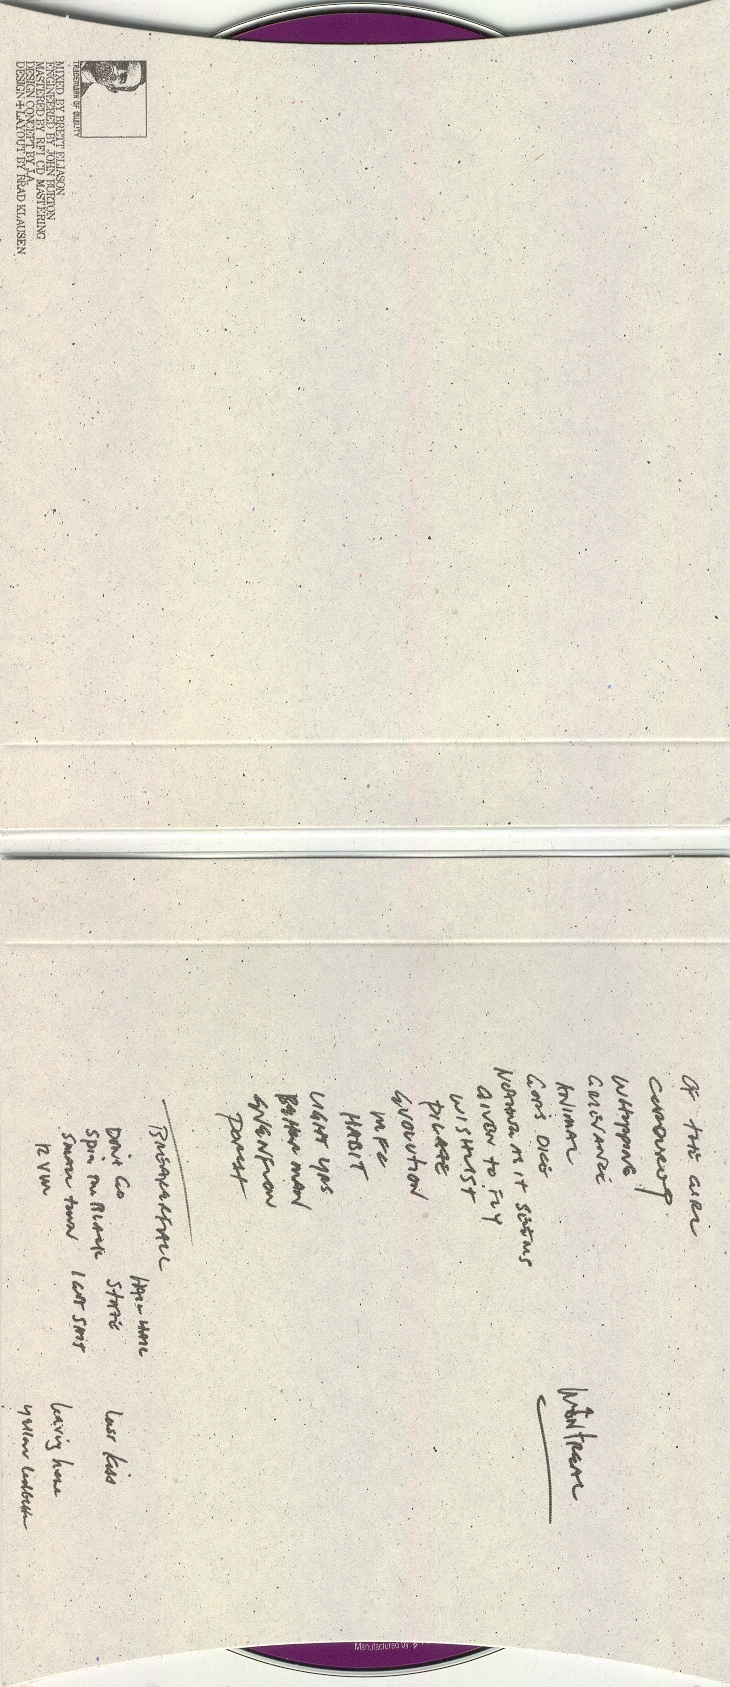 TRADEMARK OF QUALITY
MIXED BY BRETT ELIASON
ENGINEERED BY JOHN BURTON
MASTERED BY RFI CD MASTERING
DESIGN CONCEPT BY J.A.
DESIGN + LAYOUT BY BRAD KLAUSEN
OF THE GIRL
CORDUROY
WHIPPING
GRIEVANCE
ANIMAL
GODS DICE
NOTHING AS IT SEEMS
GIVEN TO FLY
WISHLIST
PILATE
EVOLUTION
MFC
HABIT
LIGHT YRS
BETTER MAN
EVENFLOW
MONTREAL
BREAKERFALL
HAIL HAIL
Don't Go
STATIC
Last Kiss
Spin the BLACK
SMALL TOWN
LIGHT YRS
leaving here
yellow ledbetter
Manufactured by